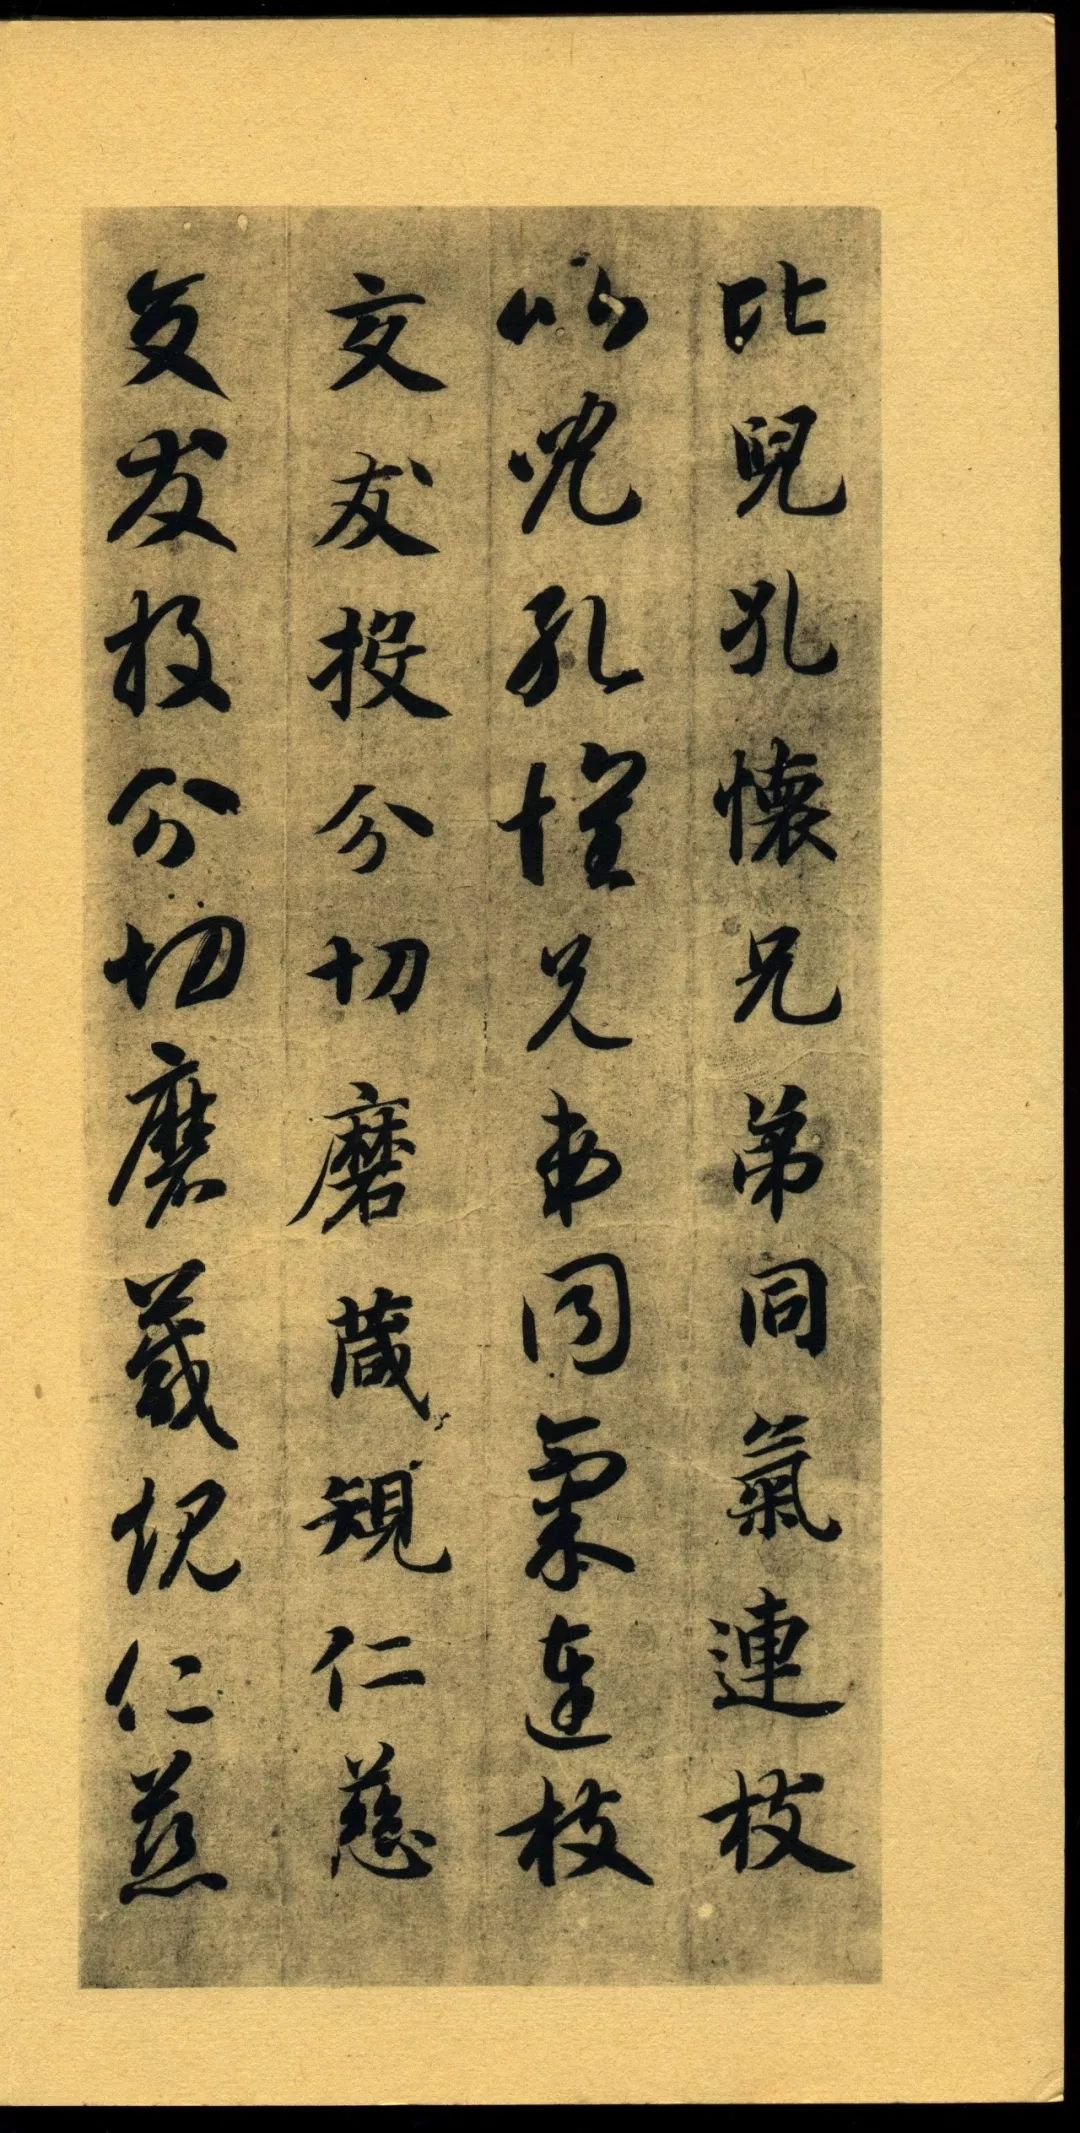 比兒孔懷兄弟同氣連枝
比兒孔懷兄弟同氣連枝
交友投分切磨葴規仁慈
交友投分切磨箴規仁慈